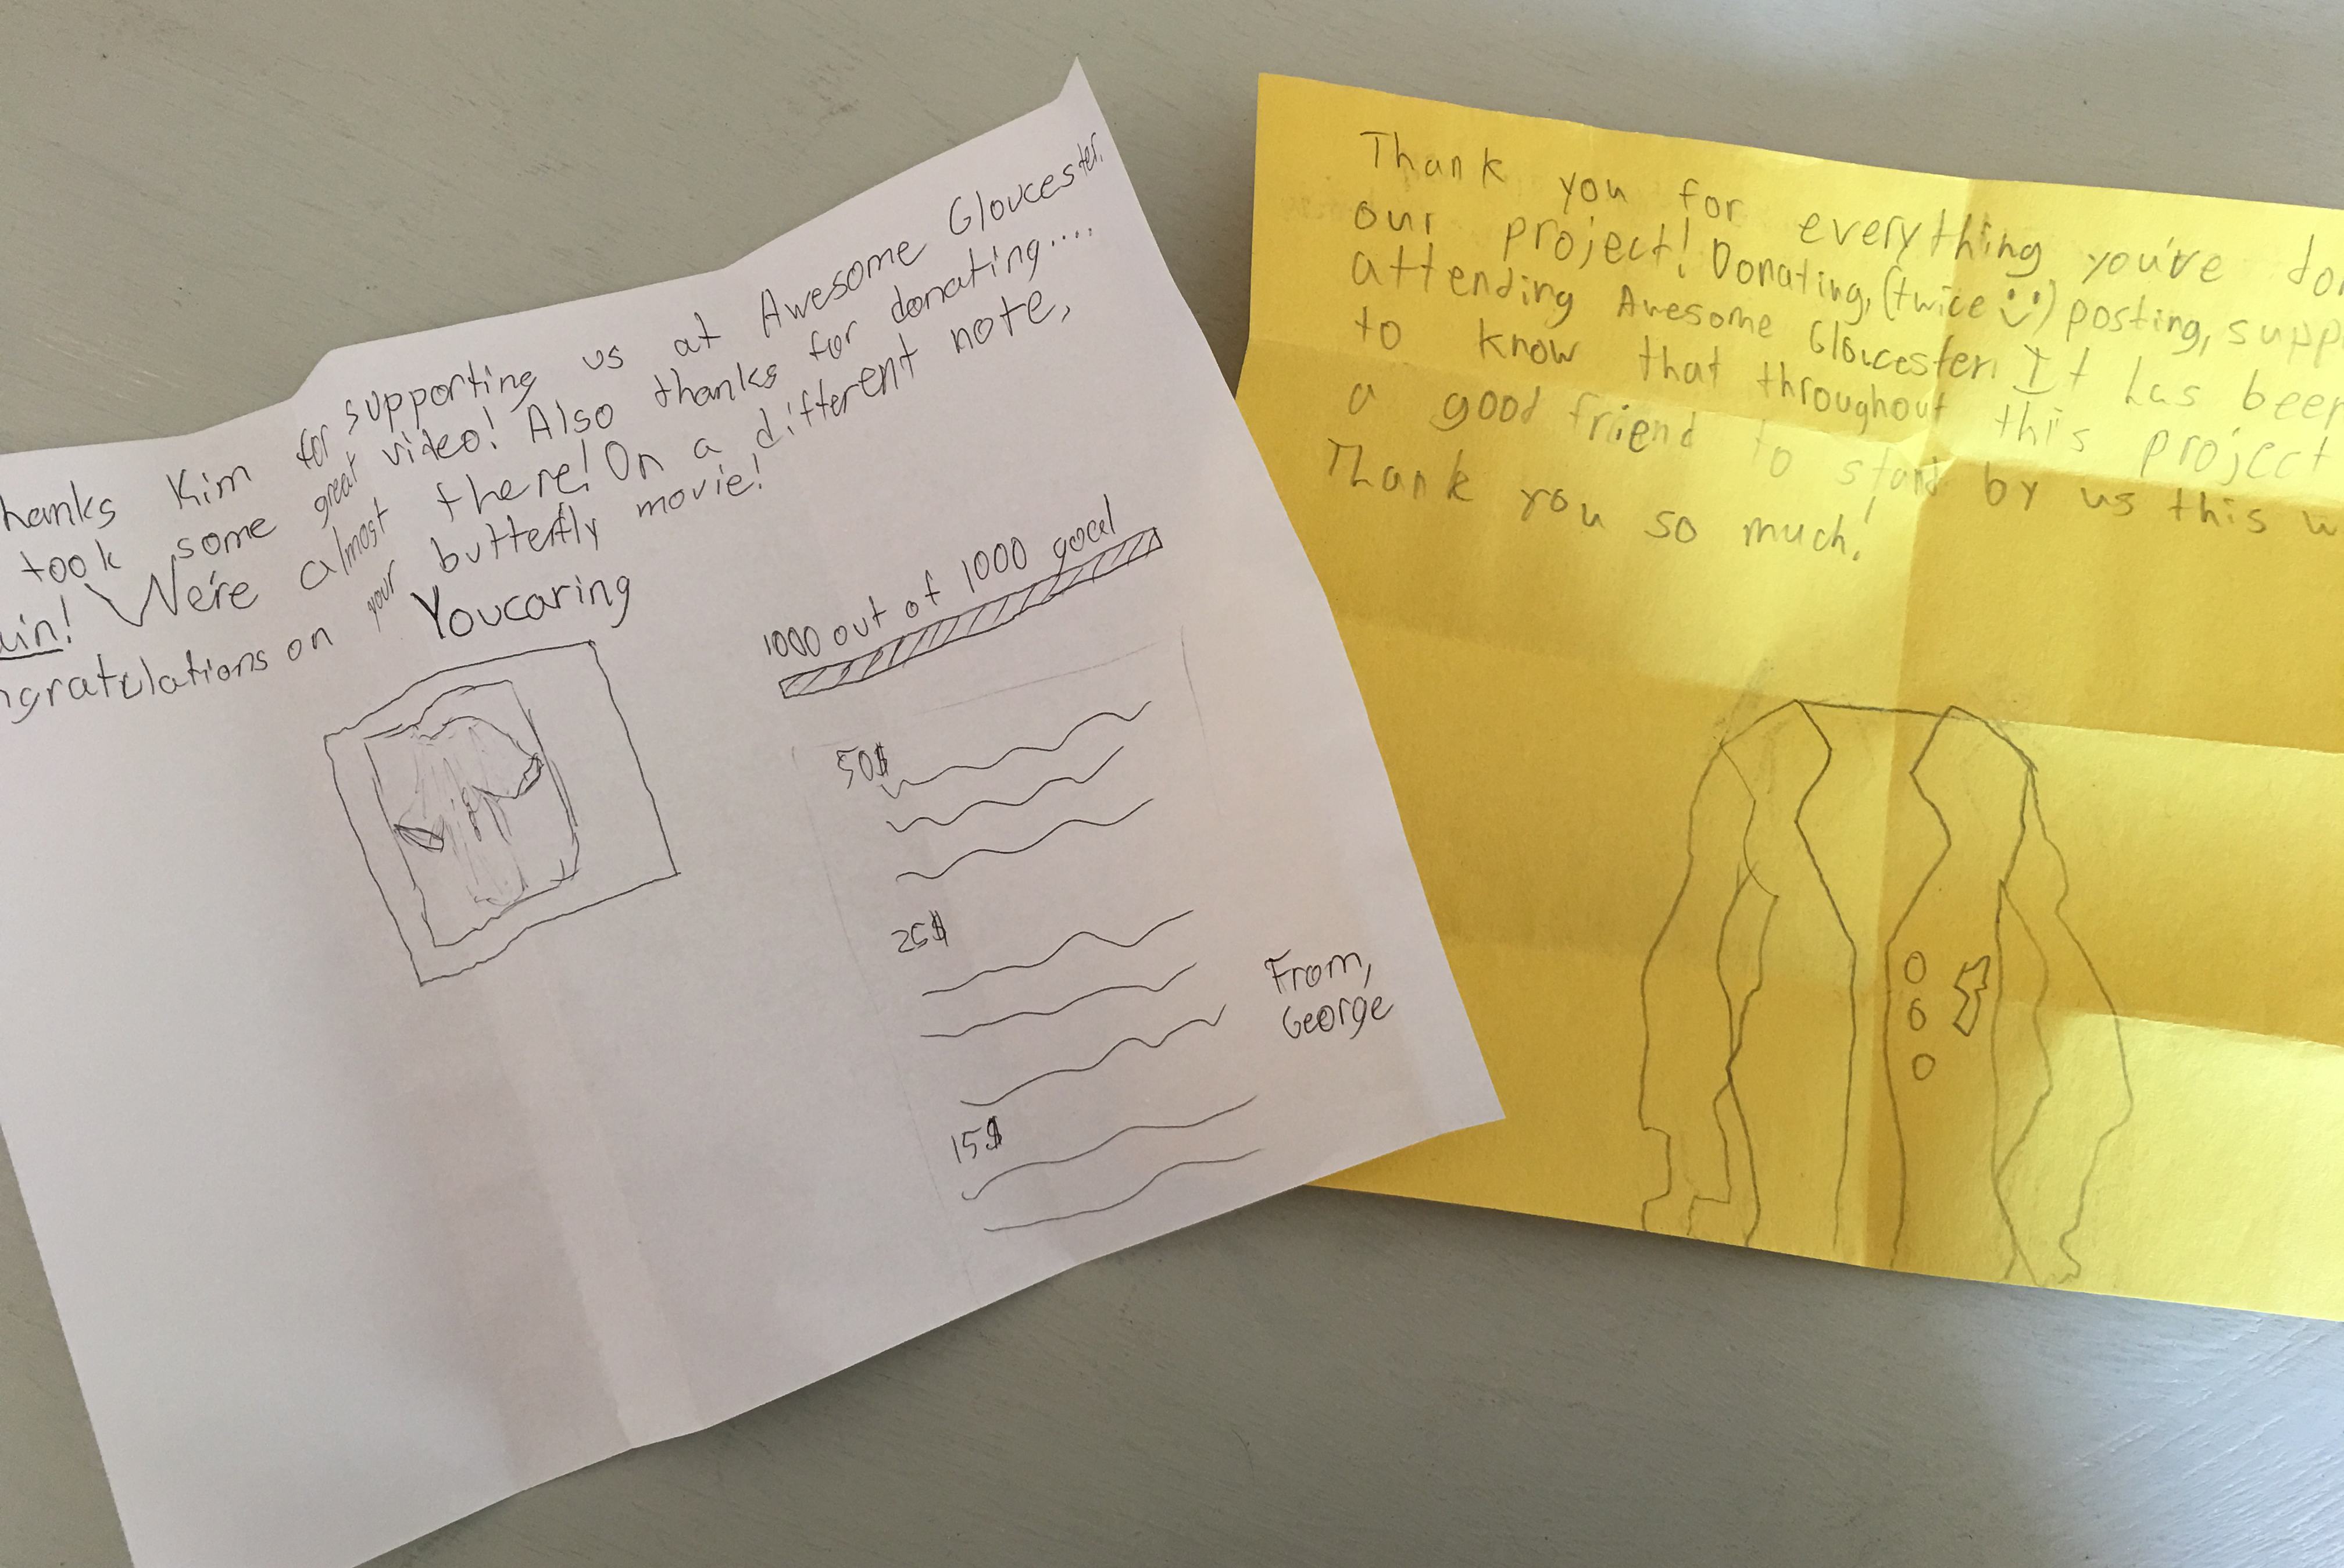 hanks Kim for supporting us at Awesome Gloucester.
took some great video! Also thanks for donating....
ain! We're almost there! On a different note,
ngratulations on your butterfly movie!
Youcaring
1000 out of 1000 goal
50$
25$
15$
From,
George
Thank you for everything you've do
our project! Donating, (twice :) posting, supp
attending Awesome Gloucester. It has been
to know that throughout this project
a good friend to stand by us this w
Thank you so much!